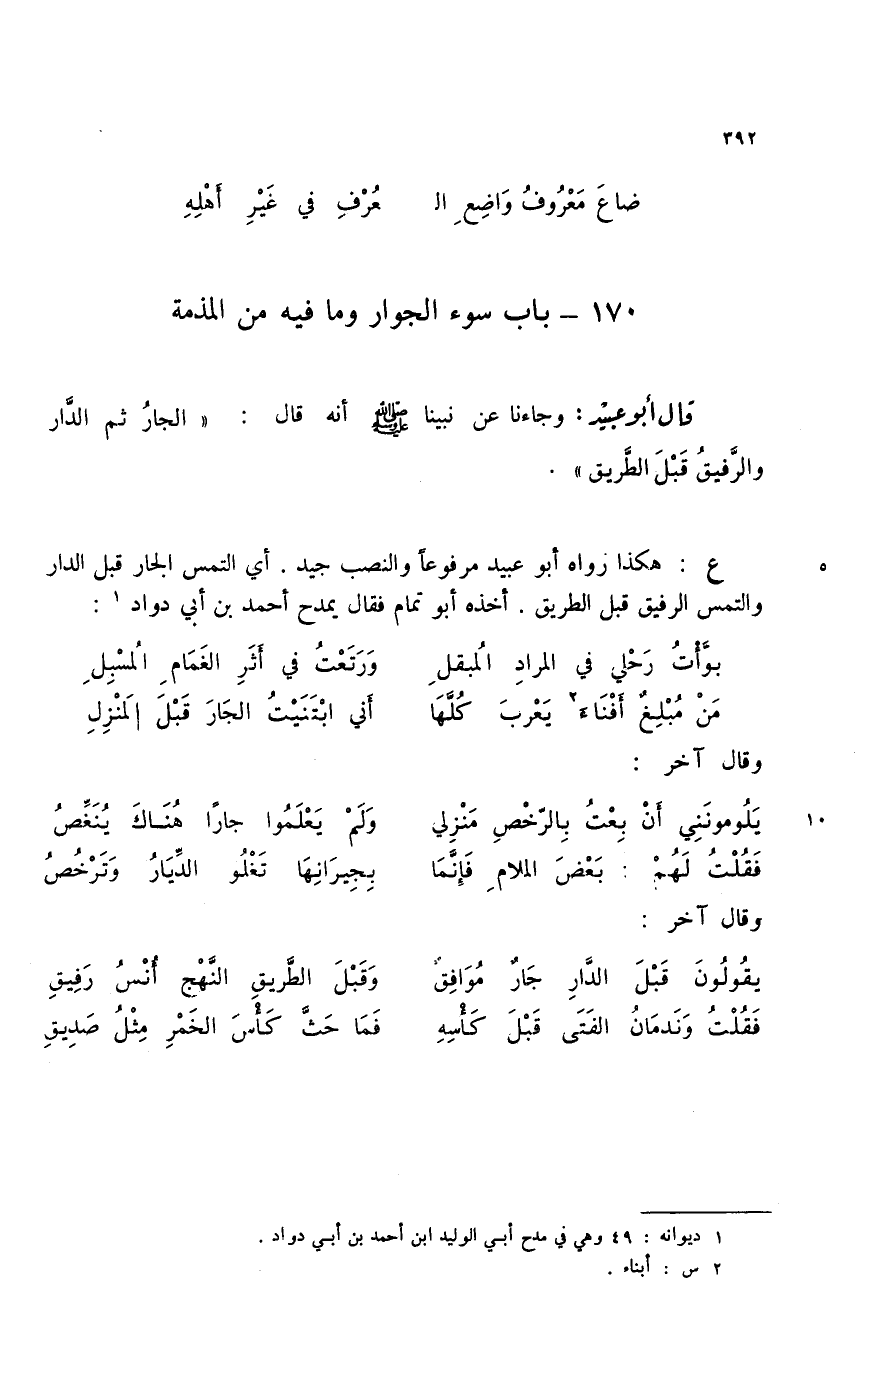 ٣٩٢
ضاعَ مَعْرُوفُ وَاضِعِ الـ عُرْفِ في غَيْرِ أَهْلِهِ
١٧٠ – باب سوء الجوار وما فيه من المذمة
قال أبو عبيد : وجاءنا عن نبينا ﷺ أنه قال : « الجارُ ثم الدَّار
والرَّفيقُ قَبْلَ الطَّريق » .
ع : هكذا زواه أبو عبيد مرفوعاً والنصب جيد . أي التمس الجار قبل الدار ٥
والتمس الرفيق قبل الطريق . أخذه أبو تمام فقال يمدح أحمد بن أبي دواد ١ :
بوَّأْتُ رَحْلي في المرادِ المُبقلِ وَرَتَعْتُ في أَثَرِ الغَمَامِ المُسْبِلِ
مَنْ مُبْلِغٌ أَفْنَاءَ٢ يَعْربَ كُلَّهَا أَني ابْتَنَيْتُ الجَارَ قَبْلَ المَنْزِلِ
وقال آخر :
يَلُومونَنِي أَنْ بِعْتُ بِالرّخْصِ مَنْزِلي وَلَمْ يَعْلَمُوا جارًا هُنَـاكَ يُنَغِّصُ ١٠
فَقُلْتُ لَهُمْ : بَعْضَ الملامِ فَإِنَّمَا بِجِيرَانِهَا تَغْلُو الدِّيَارُ وَتَرْخُصُ
وقال آخر :
يقُولُونَ قَبْلَ الدَّارِ جَارٌ مُوَافِقٌ وَقَبْلَ الطَّريقِ النَّهْجِ أُنْسُ رَفِيقِ
فَقُلْتُ وَنَدمَانُ الفَتَى قَبْلَ كَأْسِهِ فَمَا حَثَّ كَأْسَ الخَمْرِ مِثْلُ صَدِيقِ
١ ديوانه : ٤٩ وهي في مدح أبي الوليد ابن أحمد بن أبي دواد .
٢ س : أبناء .